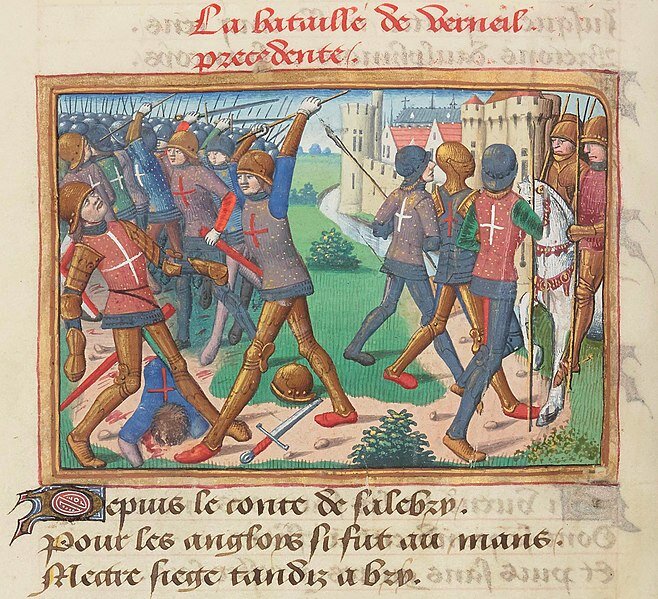 La bataille de verneil
precedente.
Depuis le conte de salebry.
Pour les angloys si fut au mans.
Mectre siege tandiz a bry.